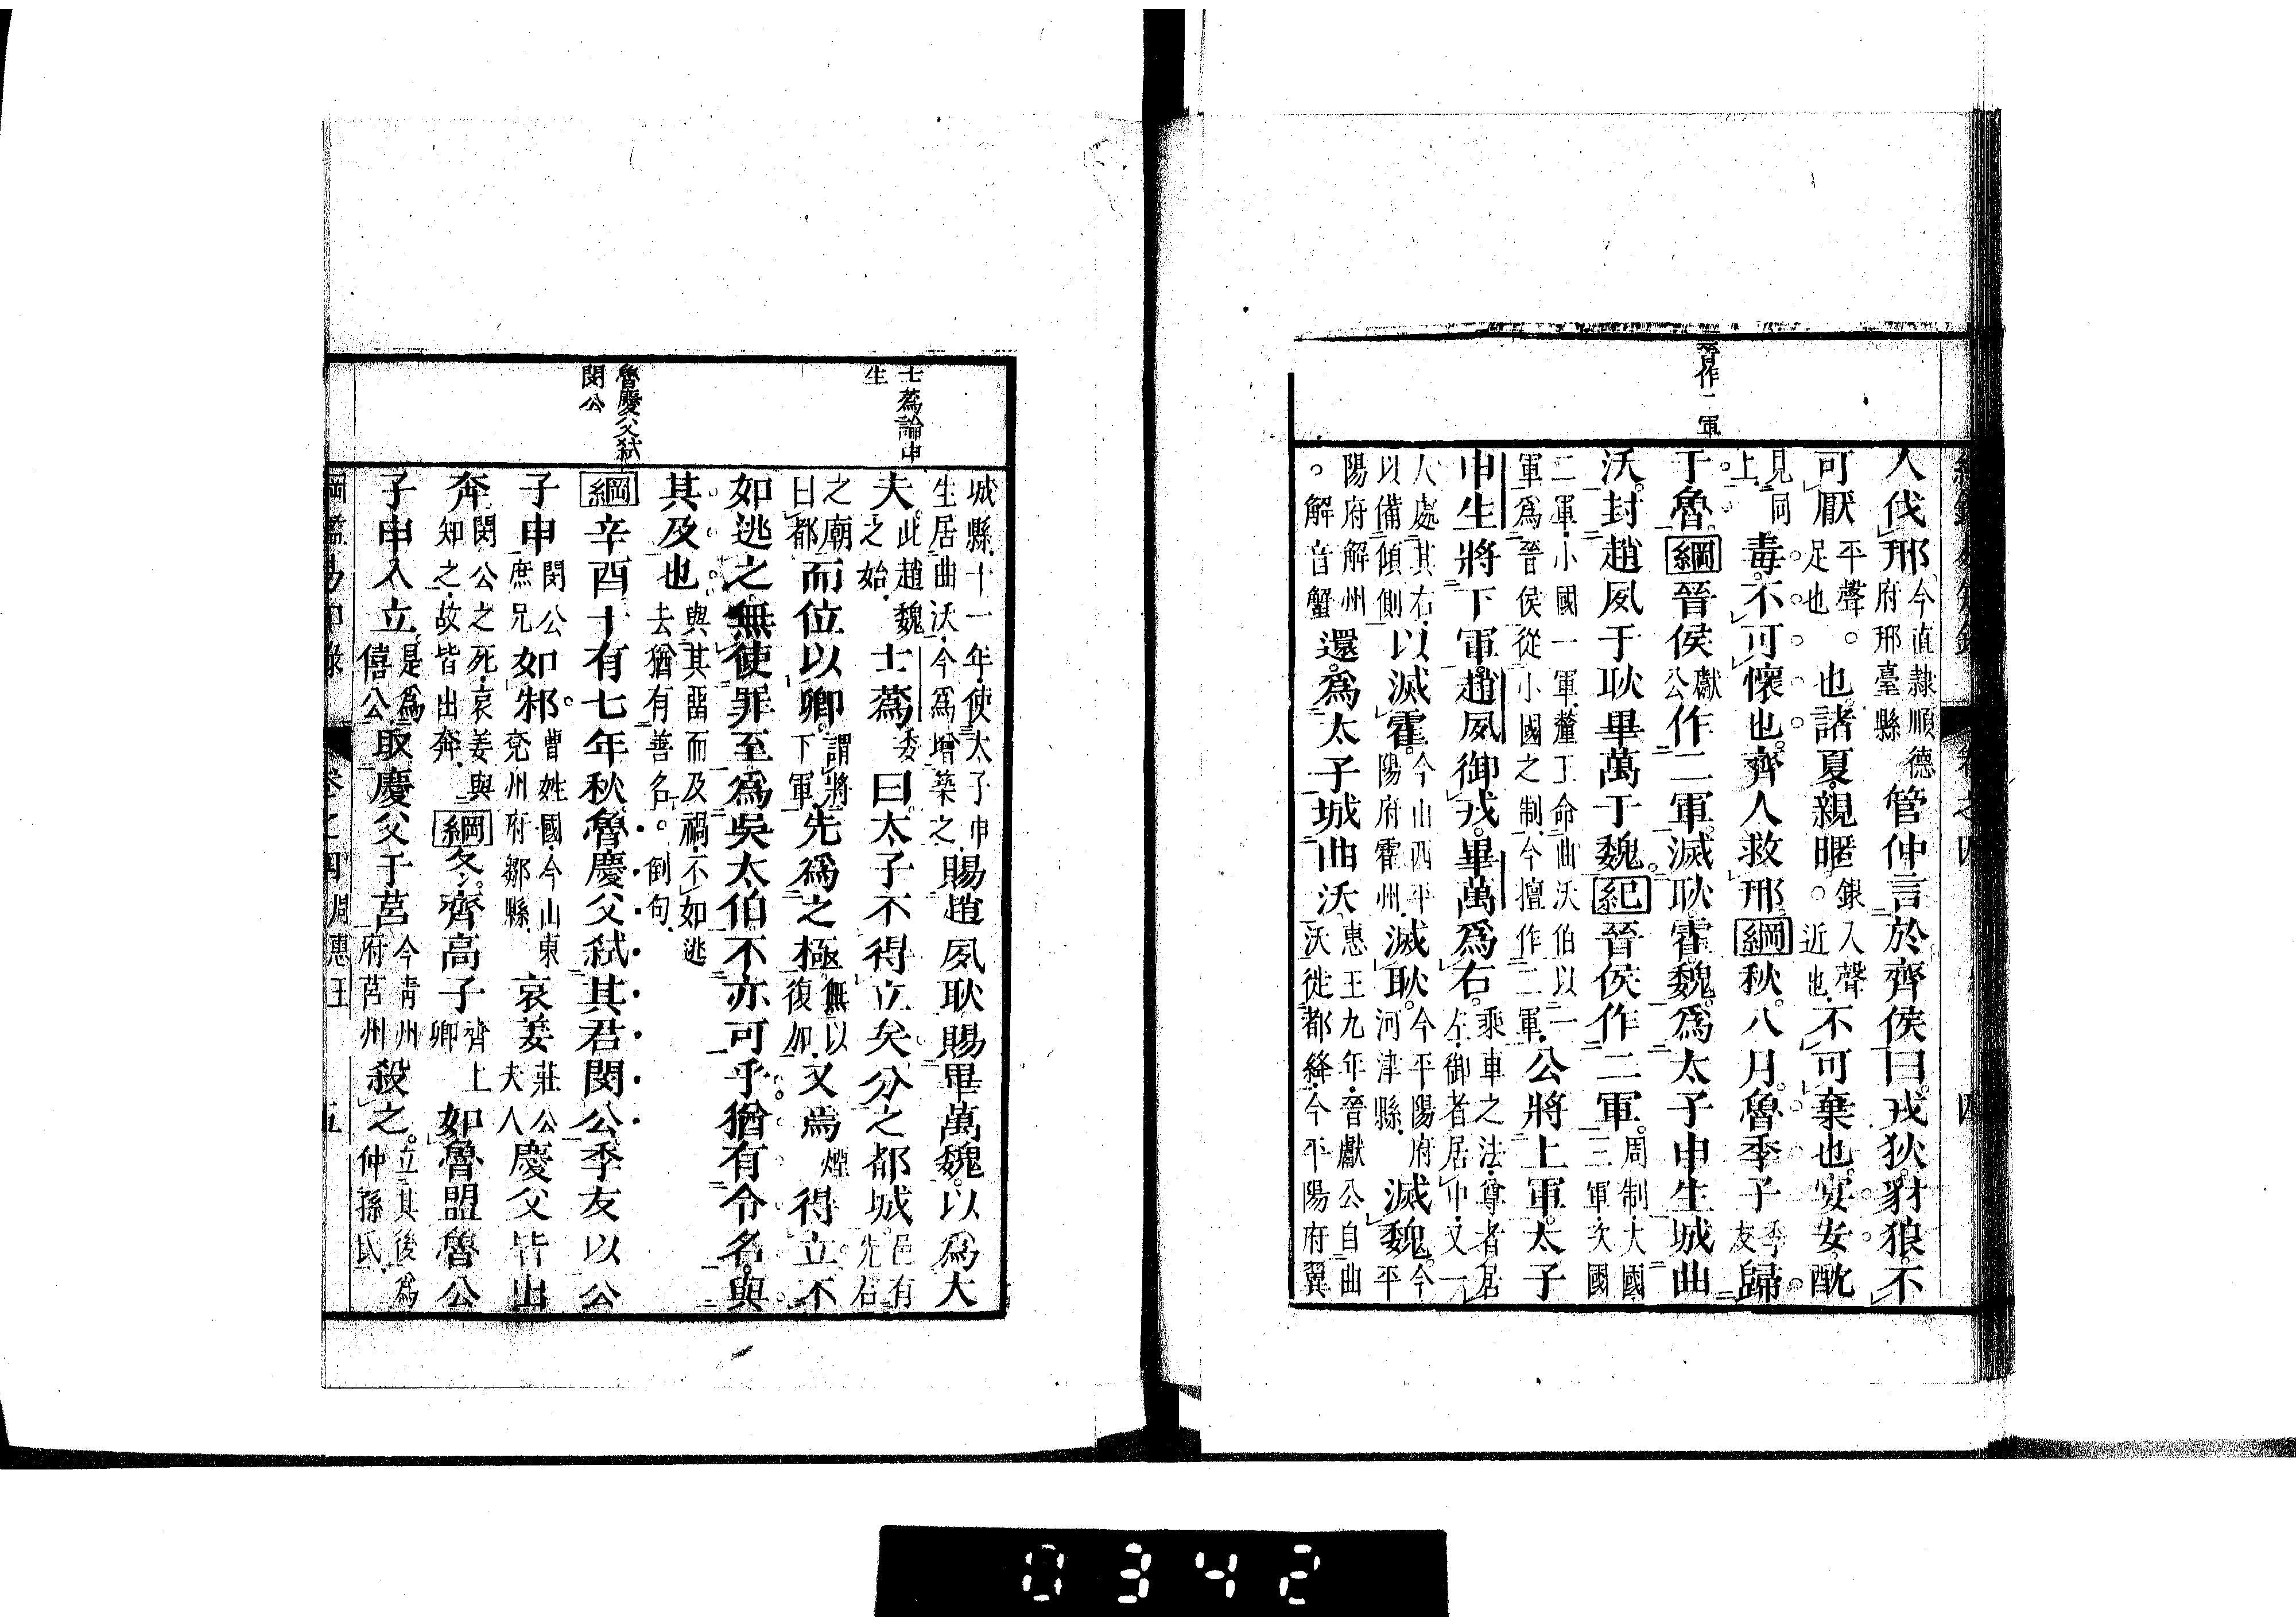 晉作二軍
人伐邢今直隷順德府邢臺縣管仲言於齊侯曰戎狄豺狼不
可厭平聲。足也也諸夏親暱。銀入聲近也不可棄也宴安酖
見同上毒不可懷也齊人救邢綱秋八月魯季子季友歸
于魯綱晉侯獻公作二軍滅耿霍魏爲太子申生城曲
沃封趙夙于耿畢萬于魏紀晉侯作二軍周制大國三軍次國
二軍小國一軍釐王命曲沃伯以一軍爲晉侯從小國之制今擅作二軍公將上軍太子
申生將下軍趙夙御戎畢萬爲右乘車之法尊者居左御者居中又一
人處其右以備傾側以滅霍今山西平陽府霍州滅耿今平陽府河津縣滅魏今平
陽府解州。解音蟹還爲太子城曲沃惠王九年晉獻公自曲沃徙都絳今平陽府翼
卷之四
四
士蔿論申生
魯慶父弑閔公
城縣十一年使太子申生居曲沃今爲增築之賜趙夙耿賜畢萬魏以爲大
夫此趙魏之始士蔿委曰太子不得立矣分之都城邑有先君
之廟曰都而位以卿謂將下軍先爲之極無以復加又焉煙得立不
如逃之無使罪至爲吳太伯不亦可乎猶有令名與
其及也與其畱而及禍不如逃去猶有善名。倒句
綱辛酉十有七年秋魯慶父弑其君閔公季友以公
子申閔公庶兄如邾曹姓國今山東兗州府鄒縣哀姜莊公夫人慶父皆出
奔閔公之死哀姜與知之故皆出奔綱冬齊高子齊上卿如魯盟魯公
子申入立是爲僖公取慶父于莒今青州府莒州殺之立其後爲仲孫氏
綱鑑易知録
卷之四
周惠王
五